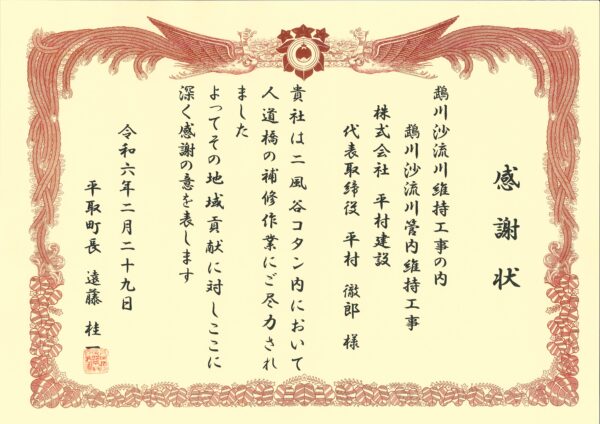 感謝状
鵡川沙流川維持工事の内
鵡川沙流川管内維持工事
株式会社 平村建設
代表取締役 平村 徹郎 様
貴社は二風谷コタン内において
人道橋の補修作業にご尽力され
ました
よってその地域貢献に対しここに
深く感謝の意を表します
令和六年二月二十九日
平取町長 遠藤 桂一